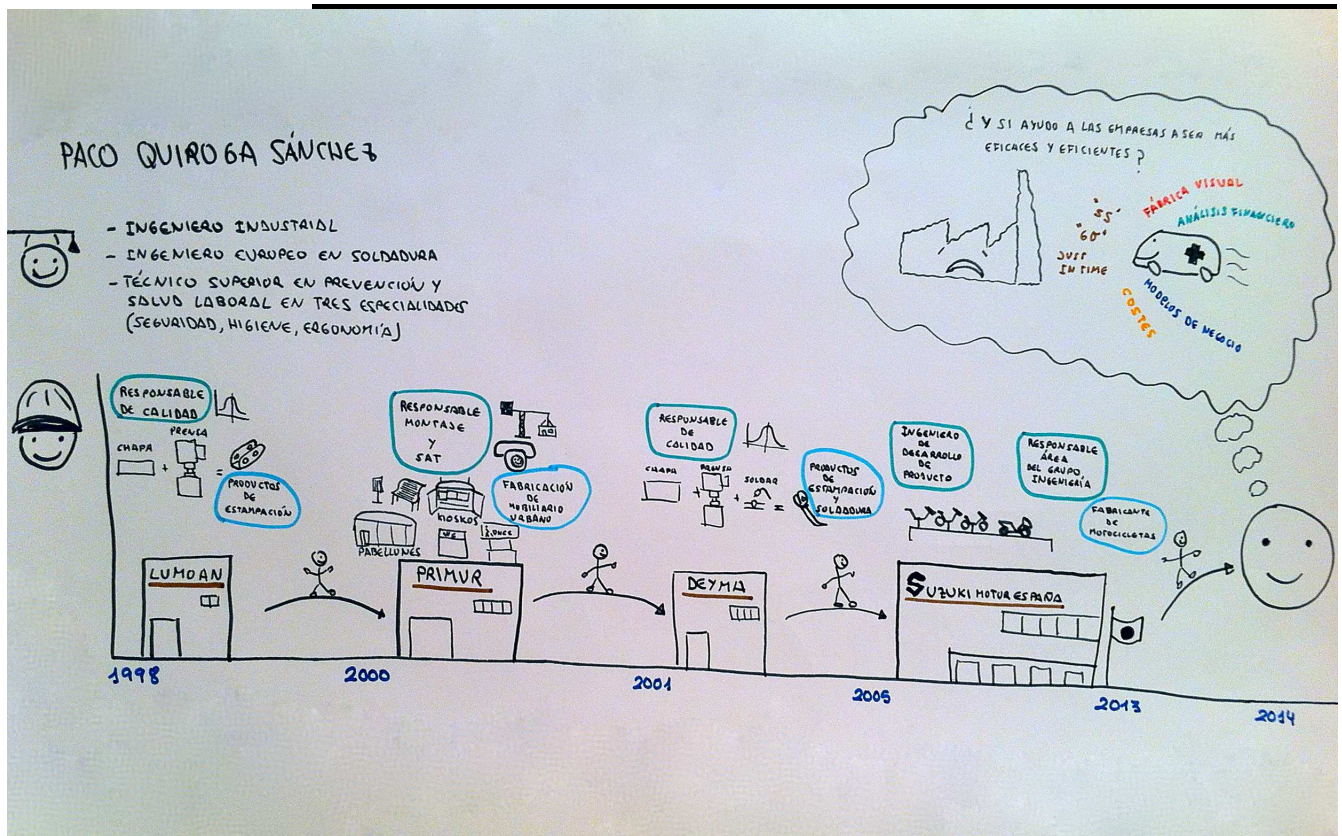 PACO QUIROGA SÁNCHEZ
- INGENIERO INDUSTRIAL
- INGENIERO EUROPEO EN SOLDADURA
- TÉCNICO SUPERIOR EN PREVENCIÓN Y
SALUD LABORAL EN TRES ESPECIALIDADES
(SEGURIDAD, HIGIENE, ERGONOMÍA)
¿Y SI AYUDO A LAS EMPRESAS A SER MÁS
EFICACES Y EFICIENTES?
"5S"
"6σ"
JUST
IN TIME
FÁBRICA VISUAL
ANÁLISIS FINANCIERO
MODELOS DE NEGOCIO
COSTES
RESPONSABLE
DE CALIDAD
CHAPA
+
PRENSA
=
PRODUCTOS
DE
ESTAMPACIÓN
LUMOAN
RESPONSABLE
MONTAJE
Y
SAT
FABRICACIÓN
DE
MOBILIARIO
URBANO
KIOSKOS
PABELLONES
WC
ONCE
PRIMUR
RESPONSABLE
DE
CALIDAD
CHAPA
+
PRENSA
+
SOLDAR
=
PRODUCTOS
DE
ESTAMPACIÓN
Y
SOLDADURA
DEYMA
INGENIERO
DE
DESARROLLO
DE
PRODUCTO
RESPONSABLE
ÁREA
DEL GRUPO,
INGENIERÍA
FABRICANTE
DE
MOTOCICLETAS
SUZUKI MOTOR ESPAÑA
1998
2000
2001
2005
2013
2014